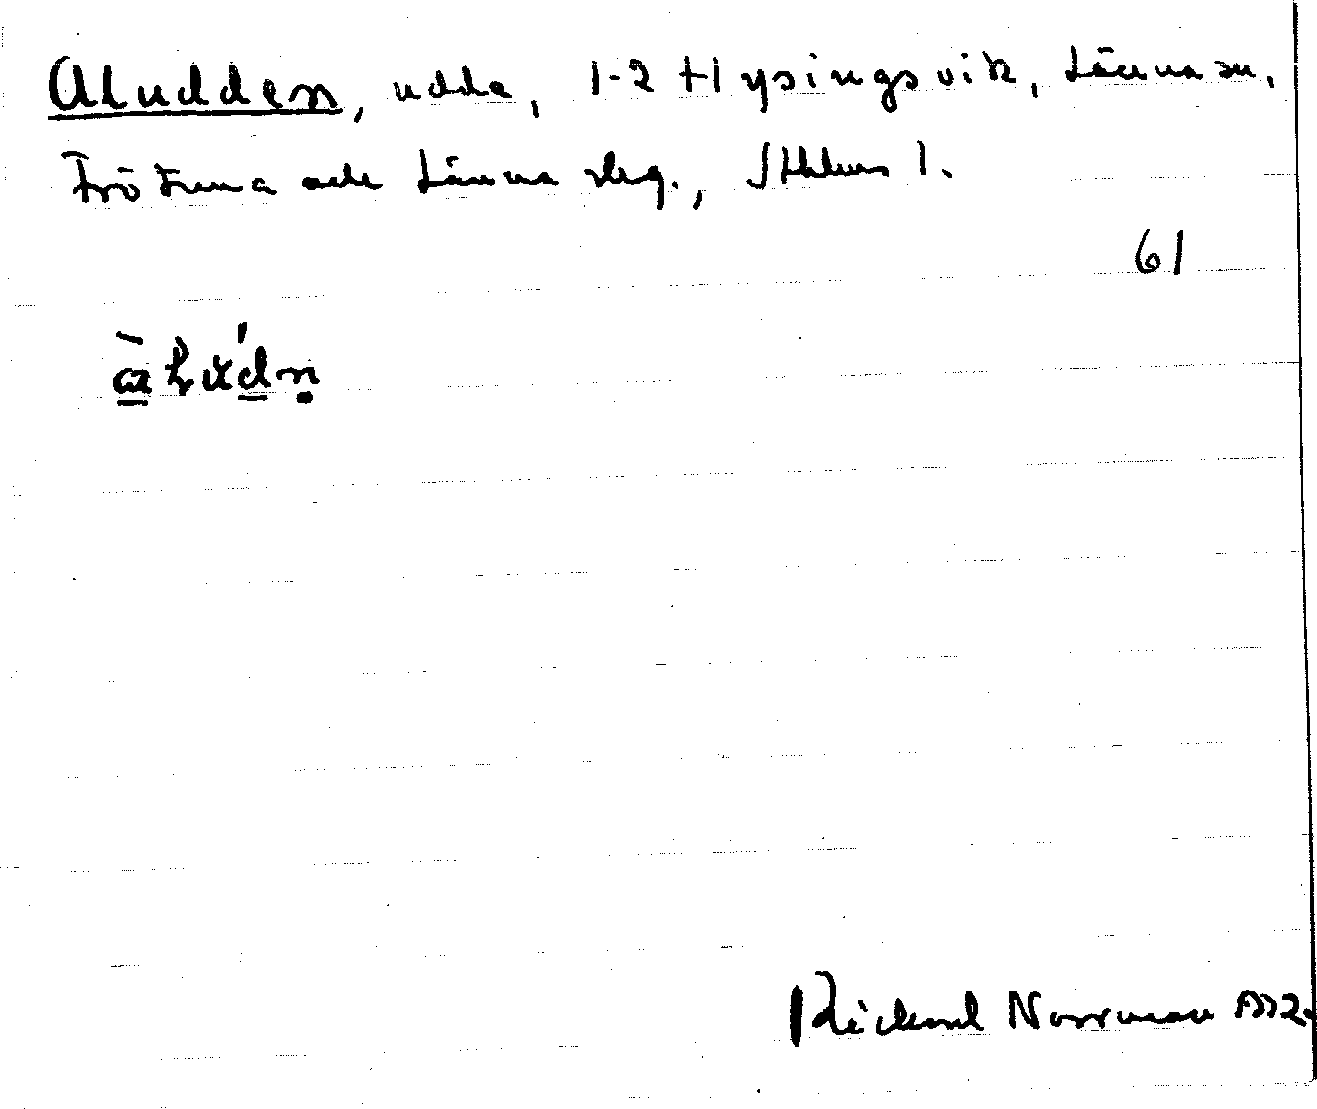 Aludden, udde, 1-2 Hysingsvik, Länna sn,
Frötuna och Länna skg., Sthlms l.
61
Rickard Norrman